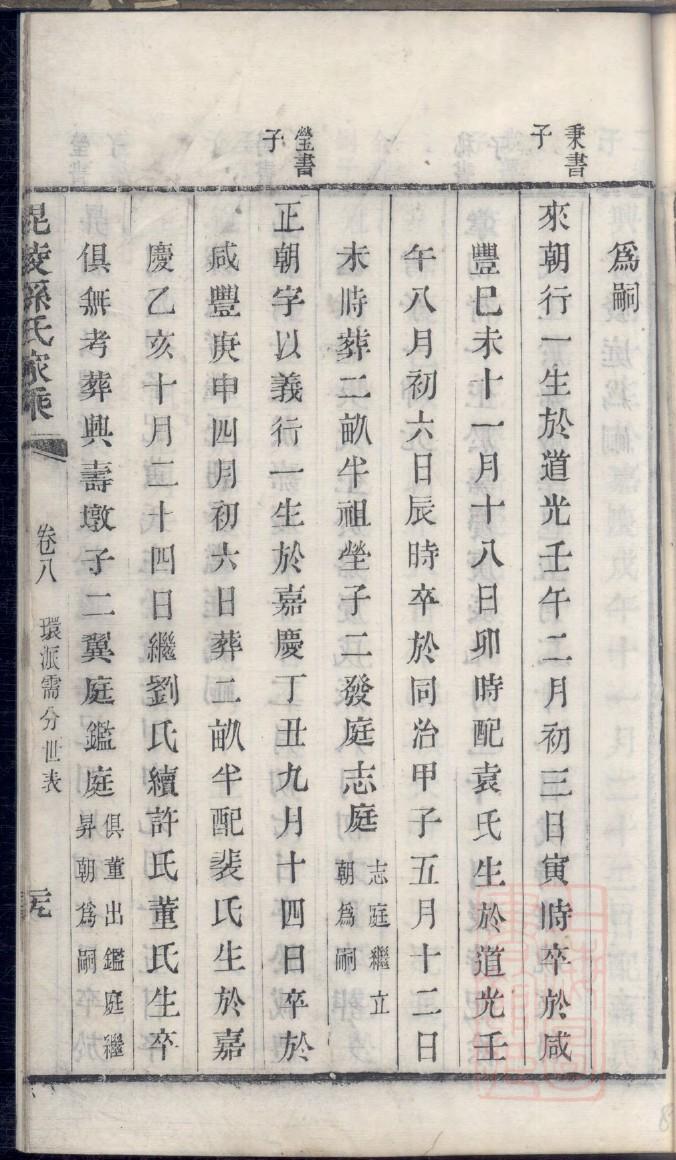 爲嗣
秉書子
來朝行一生於道光壬午二月初三日寅時卒於咸
豐巳未十一月十八日卯時配袁氏生於道光壬
午八月初六日辰時卒於同治甲子五月十二日
未時葬二畝半祖塋子二發庭志庭
志庭繼立
朝爲嗣
瑩書子
正朝字以義行一生於嘉慶丁丑九月十四日卒於
咸豐庚申四月初六日葬二畝半配裴氏生於嘉
慶乙亥十月二十四日繼劉氏續許氏董氏生卒
俱無考葬興壽墩子二翼庭鑑庭
俱董出鑑庭繼
昇朝爲嗣
毘陵孫氏家乘
卷八
環派需分世表